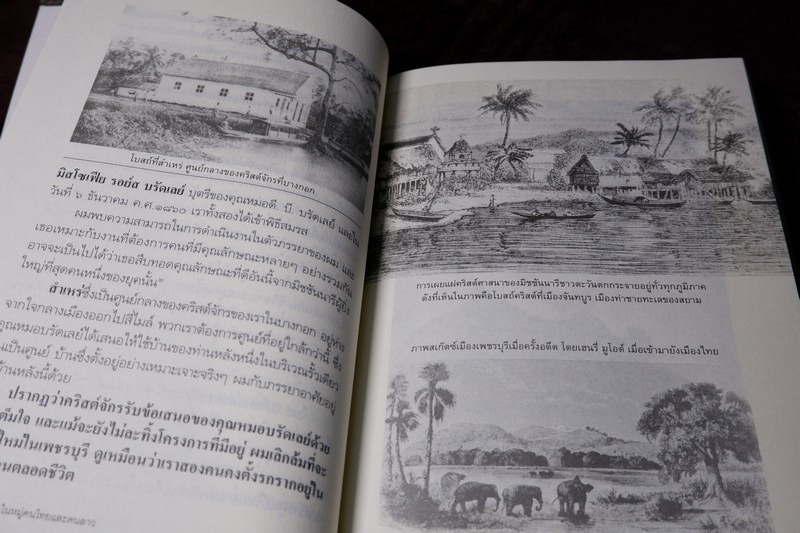 โบสถ์ที่สำเหร่ ศูนย์กลางของคริสต์จักรที่บางกอก
มิสโซเฟีย รอยัส บรัดเลย์ บุตรีของคุณหมอดี. บี. บรัดเลย์ และใน
วันที่ ๖ ธันวาคม ค.ศ.๑๘๖๐ เราทั้งสองได้เข้าพิธีสมรส
ผมพบความสามารถในการดำเนินงานในตัวภรรยาของผม และ
เธอเหมาะกับงานที่ต้องการคนที่มีคุณลักษณะหลายๆ อย่างรวมกัน
อาจจะเป็นไปได้ว่าเธอสืบทอดคุณลักษณะที่ดีอันนี้จากมิชชันนารีผู้ยิ่ง
ใหญ่ที่สุดคนหนึ่งของยุคนั้น"
สำเหร่ซึ่งเป็นศูนย์กลางของคริสต์จักรของเราในบางกอก อยู่ห่าง
จากใจกลางเมืองออกไปสี่ไมล์ พวกเราต้องการศูนย์ที่อยู่ใกล้กว่านี้ ซึ่ง
คุณหมอบรัดเลย์ได้เสนอให้ใช้บ้านของท่านหลังหนึ่งในบริเวณรั้วเดียว
นเป็นศูนย์ บ้านซึ่งตั้งอยู่อย่างเหมาะเจาะจริงๆ ผมกับภรรยาอาศัยอยู่
้านหลังนี้ด้วย
ปรากฏว่าคริสต์จักรรับข้อเสนอของคุณหมอบรัดเลย์ด้วย
ต็มใจ และแม้จะยังไม่ละทิ้งโครงการที่มีอยู่ ผมเลิกล้มที่จะ
ใหม่ในเพชรบุรี ดูเหมือนว่าเราสองคนคงตั้งรกรากอยู่ใน
นตลอดชีวิต
ในหมู่คนไทยและคนลาว
การเผยแผ่คริสต์ศาสนาของมิชชันนารีชาวตะวันตกกระจายอยู่ทั่วทุกภูมิภาค
ดังที่เห็นในภาพคือโบสถ์คริสต์ที่เมืองจันทบูร เมืองท่าชายทะเลของสยาม
ภาพสเก๊ตซ์เมืองเพชรบุรีเมื่อครั้งอดีต โดยเฮนรี่ มูโอต์ เมื่อเข้ามายังเมืองไทย